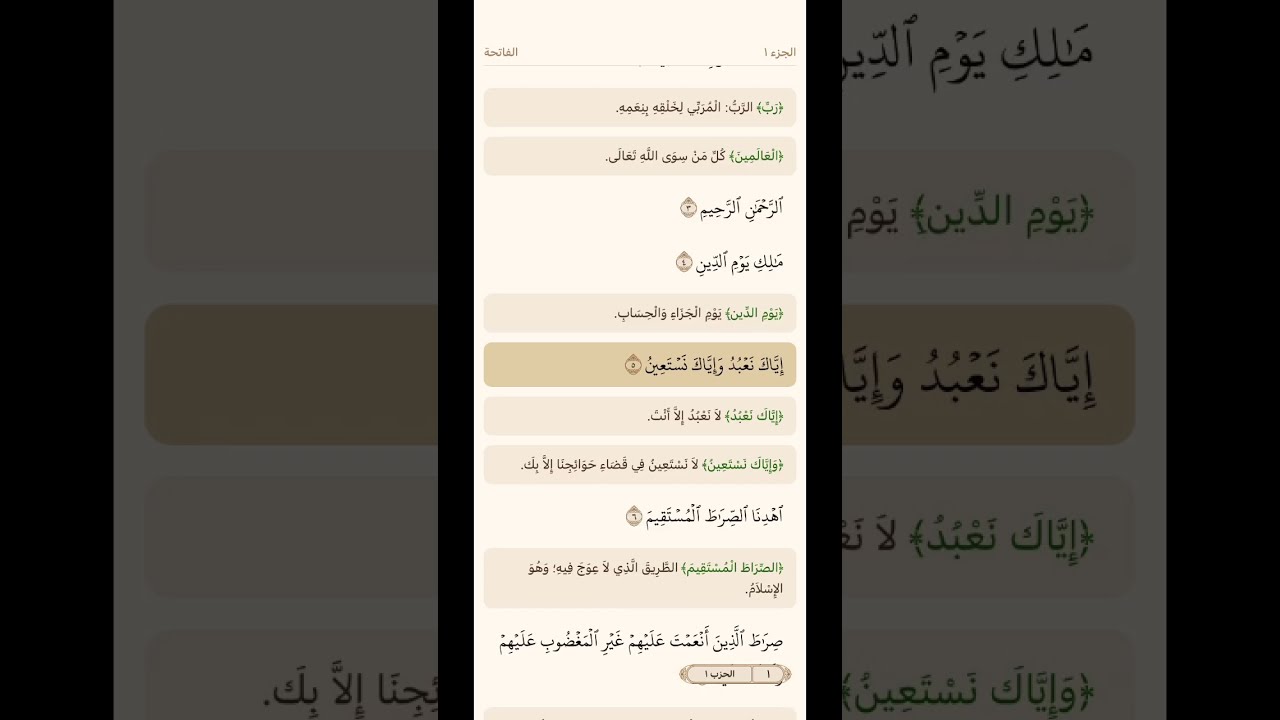 الجزء ١
الفاتحة
﴿رَبِّ﴾ الرَّبُّ: الْمُرَبِّي لِخَلْقِهِ بِنِعَمِهِ.
﴿الْعَالَمِينَ﴾ كُلِّ مَنْ سِوَى اللَّهِ تَعَالَى.
ٱلرَّحْمَٰنِ ٱلرَّحِيمِ ٣
مَٰلِكِ يَوْمِ ٱلدِّينِ ٤
﴿يَوْمِ الدِّينِ﴾ يَوْمِ الْجَزَاءِ وَالْحِسَابِ.
إِيَّاكَ نَعْبُدُ وَإِيَّاكَ نَسْتَعِينُ ٥
﴿إِيَّاكَ نَعْبُدُ﴾ لاَ نَعْبُدُ إِلاَّ أَنْتَ.
﴿وَإِيَّاكَ نَسْتَعِينُ﴾ لاَ نَسْتَعِينُ فِي قَضَاءِ حَوَائِجِنَا إِلاَّ بِكَ.
ٱهْدِنَا ٱلصِّرَٰطَ ٱلْمُسْتَقِيمَ ٦
﴿الصِّرَاطَ الْمُسْتَقِيمَ﴾ الطَّرِيقَ الَّذِي لاَ عِوَجَ فِيهِ؛ وَهُوَ
الإِسْلاَمُ.
صِرَٰطَ ٱلَّذِينَ أَنْعَمْتَ عَلَيْهِمْ غَيْرِ ٱلْمَغْضُوبِ عَلَيْهِمْ
١ الحزب ١
مَٰلِكِ يَوْمِ ٱلدِّينِ
﴿يَوْمِ الدِّينِ﴾ يَوْمِ
إِيَّاكَ نَعْبُدُ
﴿إِيَّاكَ نَعْبُدُ﴾ لاَ
﴿وَإِيَّاكَ نَسْتَعِينُ﴾
إِلاَّ بِكَ.